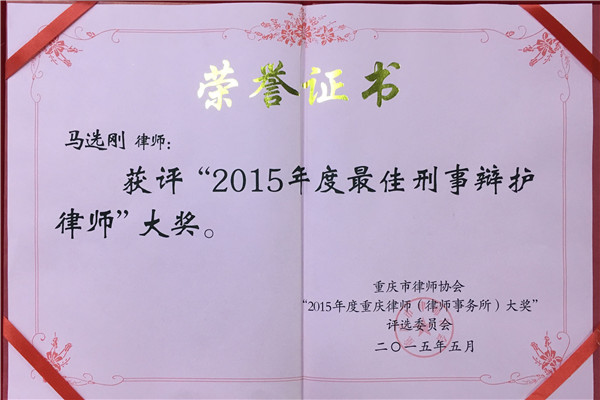 荣誉证书
马选刚 律师：
获评“2015年度最佳刑事辩护
律师”大奖。
重庆市律师协会
“2015年度重庆律师（律师事务所）大奖”
评选委员会
二〇一五年五月